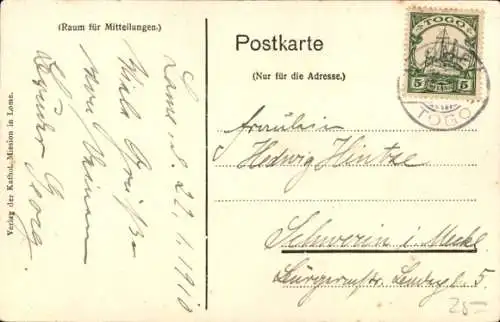 (Raum für Mitteilungen.)
Postkarte
(Nur für die Adresse.)
TOGO
5 PFENNIG 5
TOGO
Lome d. 22.1.1910
Viele Grüße
von Deinem
Georg.
Fräulein
Hedwig Hintze
Schwerin i. Meckl.
5
Verlag der Kathol. Mission in Lome.
25-